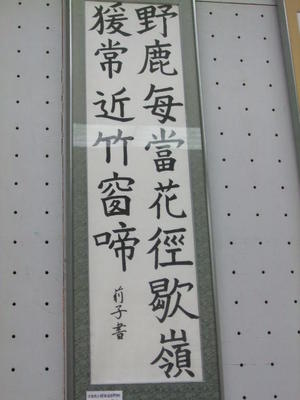 野鹿每當花徑歇嶺
猨常近竹窗啼
莉子書